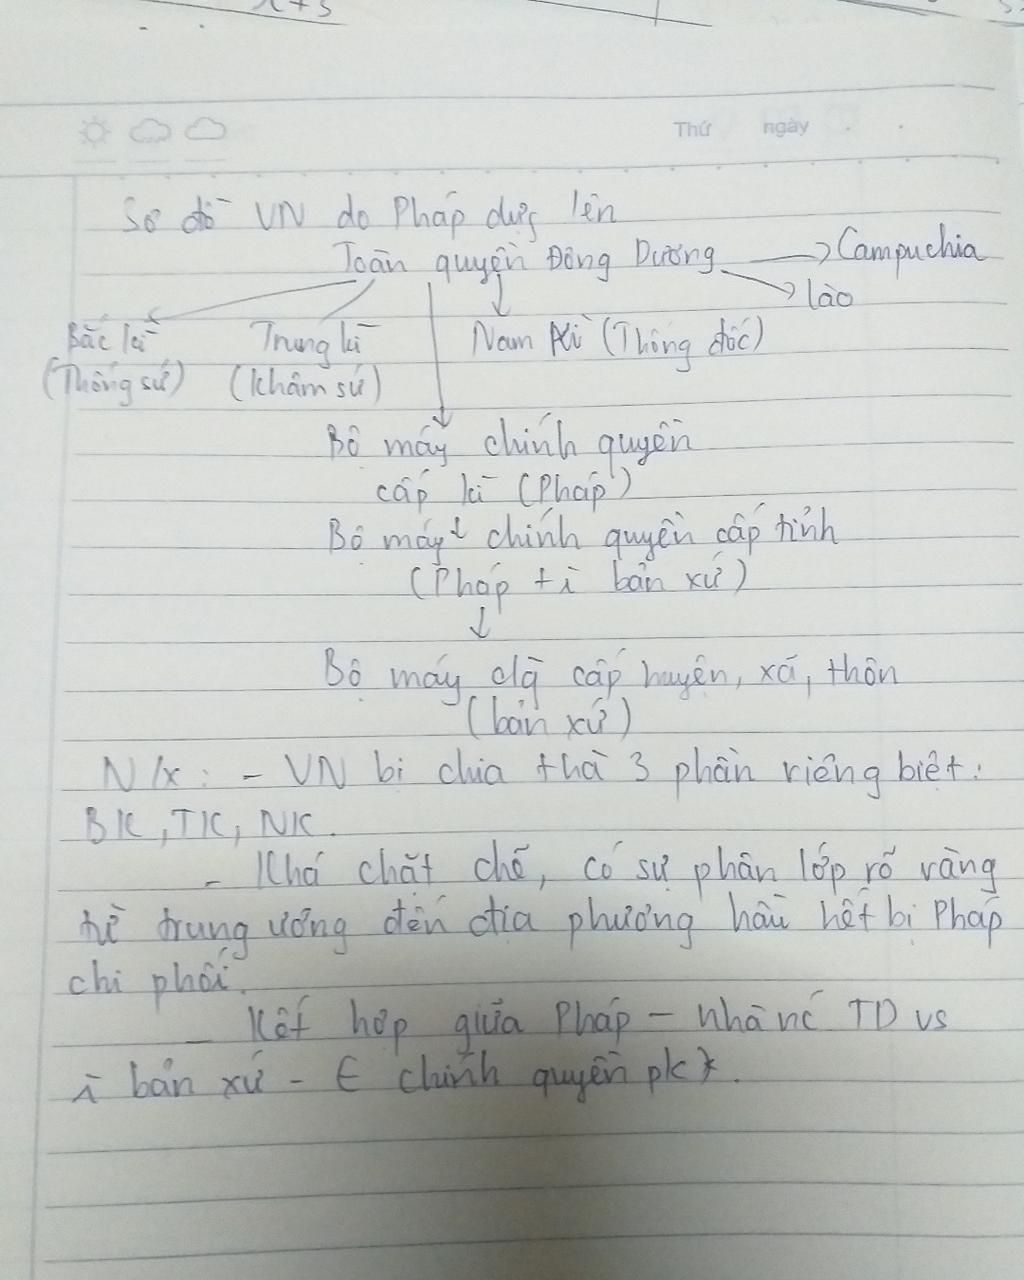 x+3
Thứ ngày
Sơ đồ VN do Pháp dựg lên
Toàn quyền Đông Dương → Campuchia
→ Lào
Bắc kì Trung kì Nam Kì (Thống đốc)
(Thống sứ) (Khâm sứ)
Bộ máy chính quyền
cấp kì (Pháp)
Bộ máy chính quyền cấp tỉnh
(Pháp + ī bản xứ)
↓
Bộ máy cq̄ cấp huyện, xã, thôn
(bản xứ)
N/x: - VN bị chia thà 3 phần riêng biệt:
BK, TK, NK.
- Khá chặt chẽ, có sự phân lớp rõ ràng
từ trung ương đến địa phương hầu hết bị Pháp
chi phối.
- Kết hợp giữa Pháp - nhà nc TD vs
ī bản xứ - € chính quyền pk*.